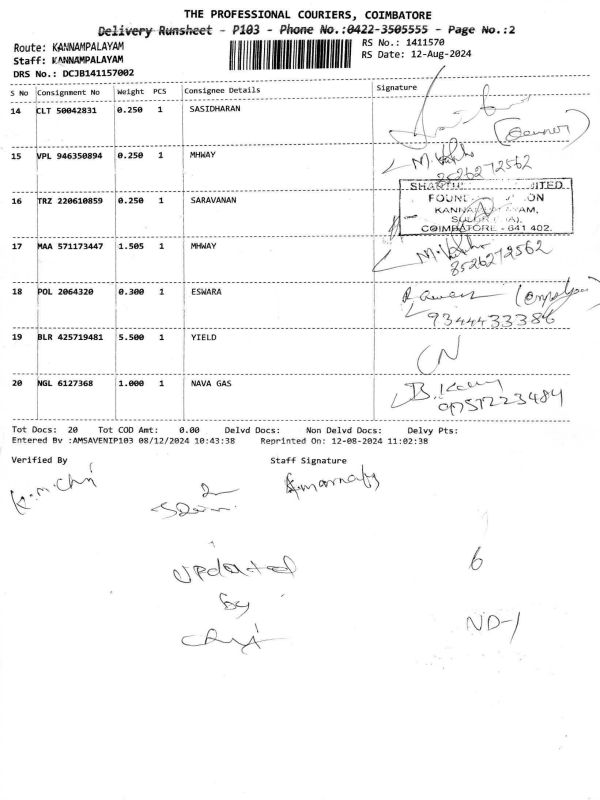 THE PROFESSIONAL COURIERS, COIMBATORE
Delivery Runsheet - P103 - Phone No.:0422-3505555 - Page No.:2
Route: KANNAMPALAYAM
RS No.: 1411570
Staff: KANNAMPALAYAM
RS Date: 12-Aug-2024
DRS No.: DCJB141157002
S No Consignment No Weight PCS Consignee Details Signature
14 CLT 50042831 0.250 1 SASIDHARAN
15 VPL 946350894 0.250 1 MHWAY
8526272562
16 TRZ 220610859 0.250 1 SARAVANAN
COIMBATORE - 641 402.
17 MAA 571173447 1.505 1 MHWAY
8526272562
18 POL 2064320 0.300 1 ESWARA
9344433386
19 BLR 425719481 5.500 1 YIELD
CN
20 NGL 6127368 1.000 1 NAVA GAS
9751223484
Tot Docs: 20 Tot COD Amt: 0.00 Delvd Docs: Non Delvd Docs: Delvy Pts:
Entered By :AMSAVENIP103 08/12/2024 10:43:38 Reprinted On: 12-08-2024 11:02:38
Verified By Staff Signature
updated
6
by
ND-1